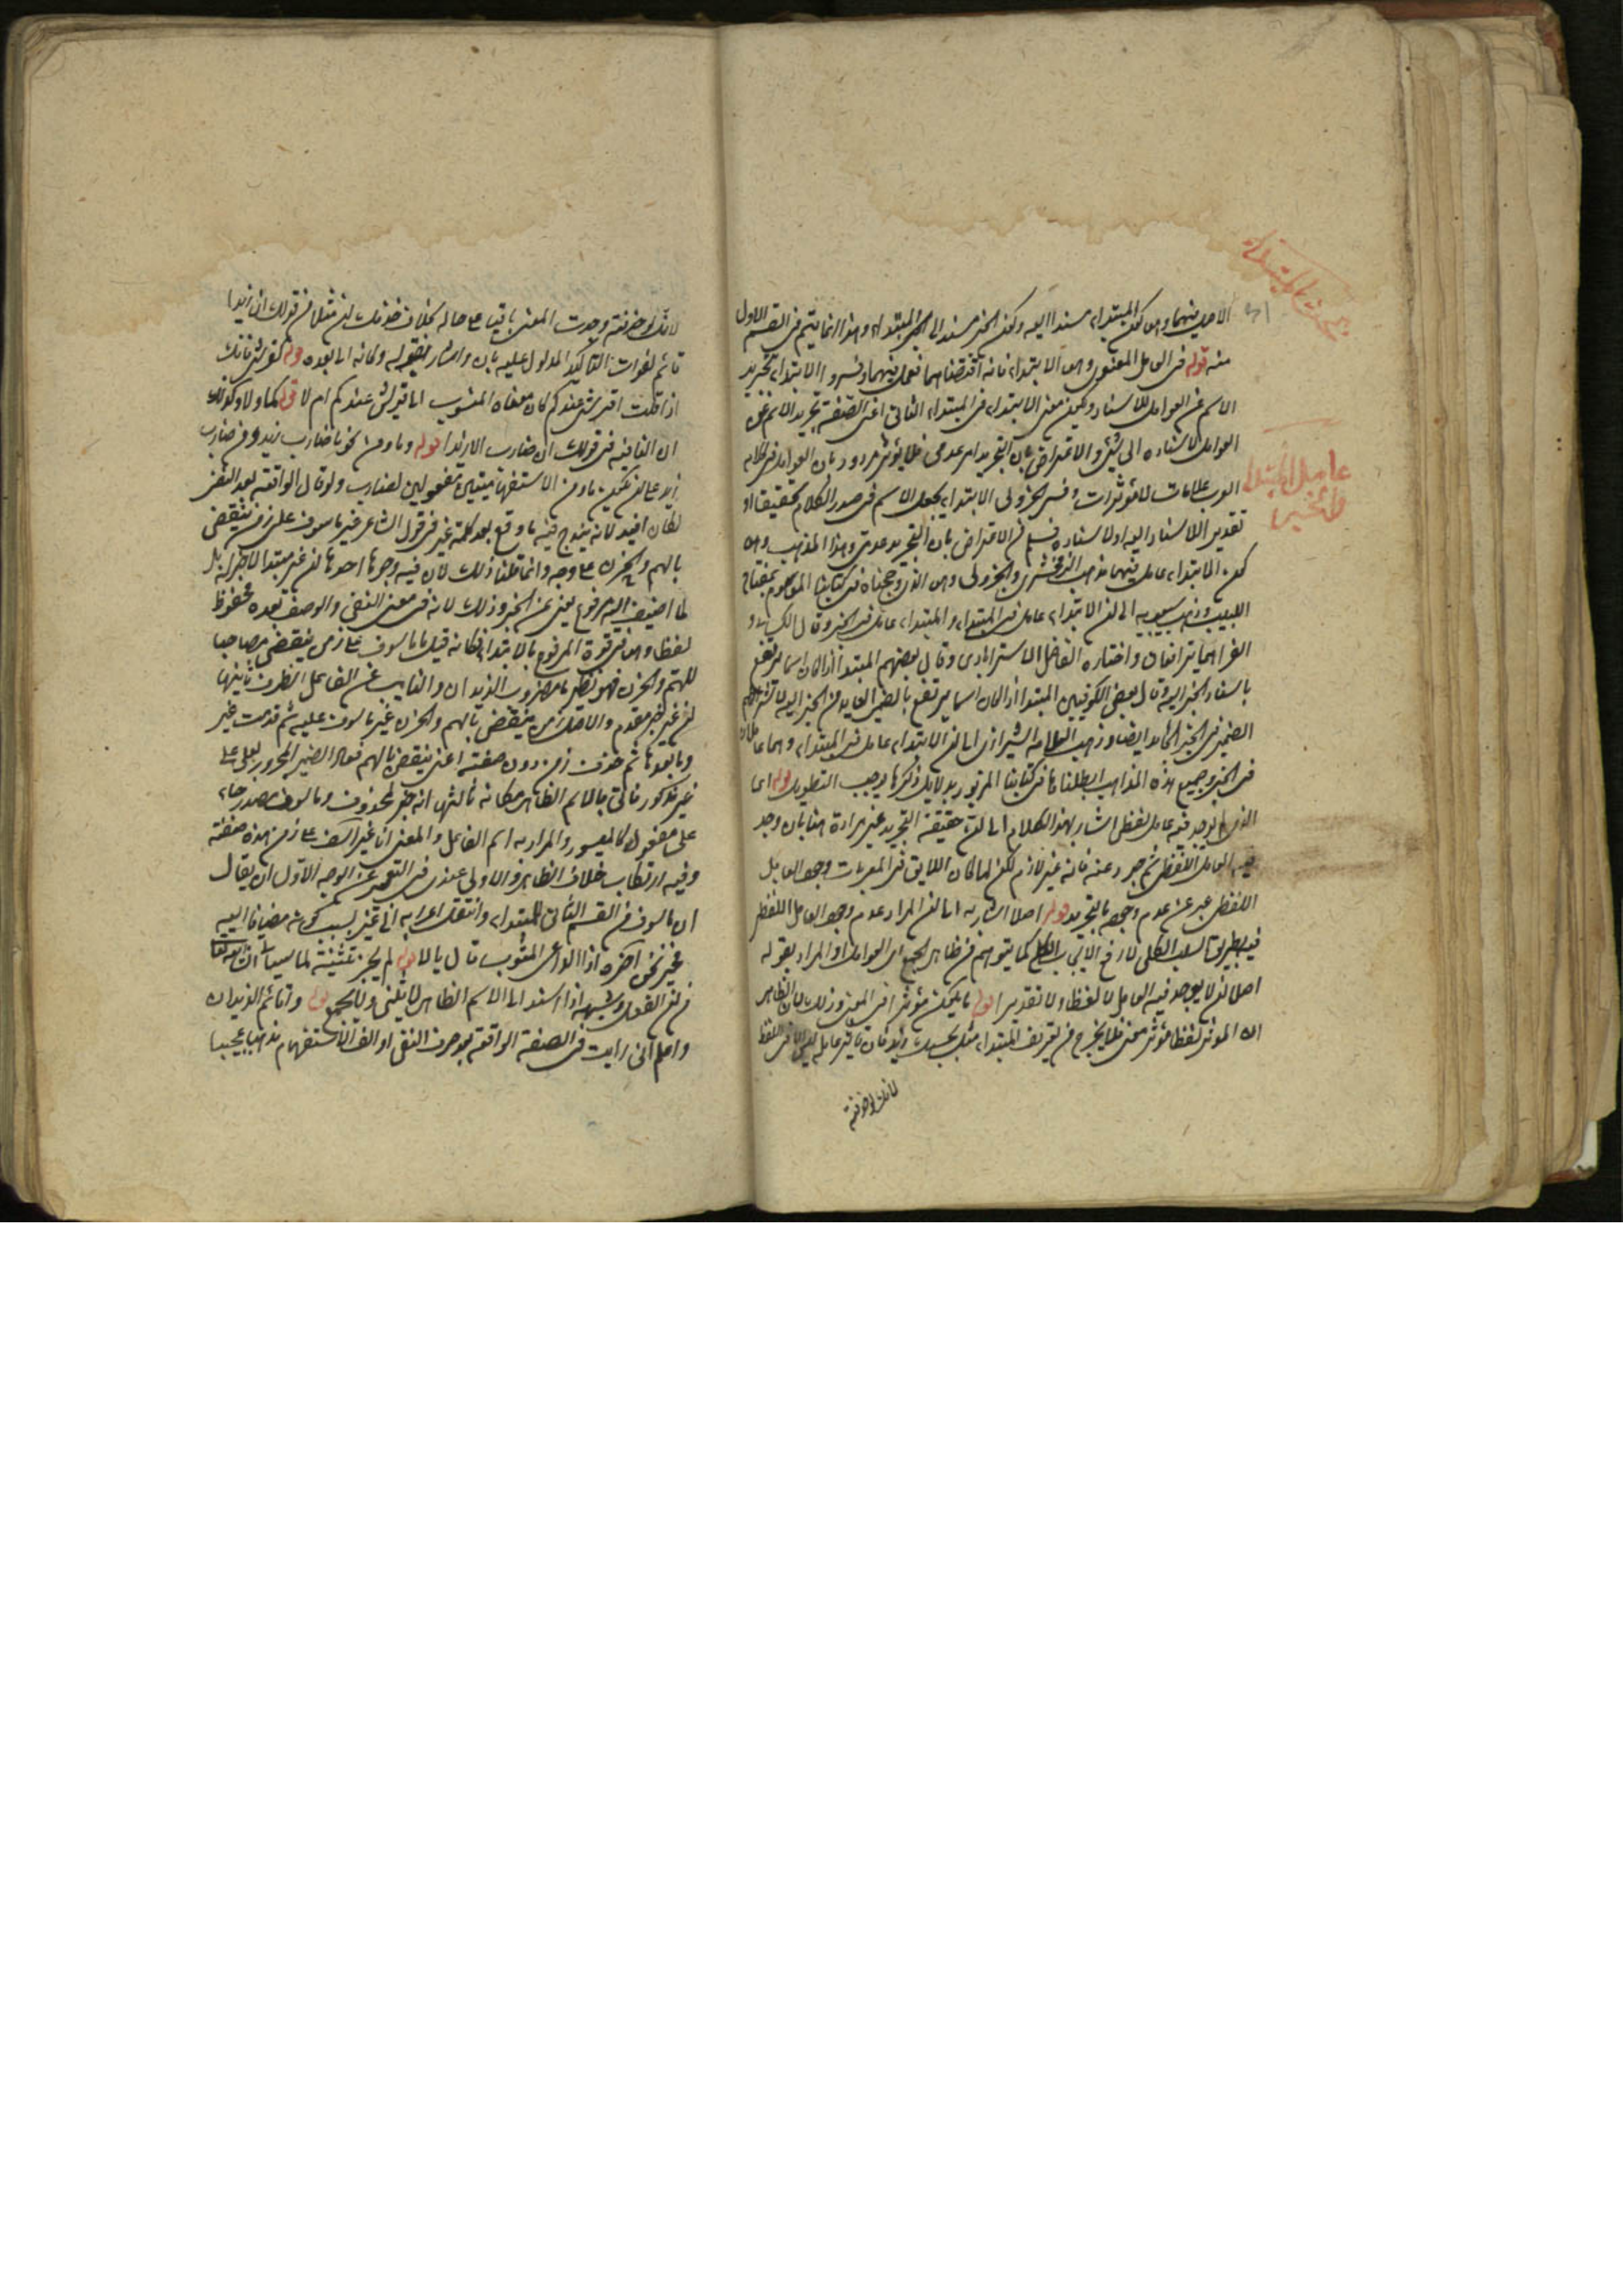 الاصل فيهما وهو كون المبتداء مسندا اليه وكون الخبر مسندا الى المبتداء وهذا انما يتم فى القسم الاول
منه قوله فى العامل المعنوى وهو الابتداء فانه اقتضاهما فعمل فيهما وفسروا الابتداء بتجريد
الاسم عن العوامل للاسناد ويكون معنى الابتداء فى المبتداء الثانى اعنى الصفة تجريد الاسم عن
العوامل لاسناده الى شئ والاعتراض بان التجريد امر عدمى فلا يؤثر مردود بان العوامل فى كلام
العرب علامات لا مؤثرات وفسر الجزولى الابتداء بجعل الاسم فى صدر الكلام تحقيقا او
تقديرا للاسناد اليه او لاسناده فسلم من الاعتراض بان التجريد عدمى وهذا المذهب وهو
كون الابتداء عاملا فيهما مذهب الزمخشرى والجزولى وهو الذى رجحناه فى كتابنا الموسوم بمفتاح
اللبيب وذهب سيبويه الى ان الابتداء عامل فى المبتداء والمبتداء عامل فى الخبر وقال الكسائى و
الفراء هما يترافعان واختاره الفاضل الاسترابادى وقال بعضهم المبتدا اذا كان اسما يرتفع
باسناد الخبر اليه وقال بعض الكوفيين المبتدا اذا كان اسما يرتفع بالضمير العايد من الخبر اليه
الضمير فى الخبر الجامد ايضا وذهب العلامة الشيرازى الى ان الابتداء عامل فى المبتداء وهما عاملان
فى الخبر وجميع هذه المذاهب ابطلناها فى كتابنا المزبور بدلايل ذكرها يوجب التطويل قوله اى
الذى لم يوجد فيه عامل لفظى اشار بهذا الكلام الى ان حقيقة التجريد غير مرادة هنا بان وجد
فيه العامل اللفظى ثم جرد عنه فانه غير لازم لكن لما كان اللايق فى المعربات وجود العامل
اللفظى عبر عن عدم وجوده بالتجريد قوله اصلا اشار به الى ان المراد عدم وجود العامل اللفظى
فيه بطريق السلب الكلى لا رفع الايجاب الكلى كما يتوهم من ظاهر الجمع اى العوامل او المراد بقوله
اصلا ان لا يوجد فيه العامل لا لفظا ولا تقديرا قوله ما يكون مؤثرا فى المعنى وذلك لان الظاهر
ان المؤثر لفظا مؤثر معنى فلا يخرج من تعريف المبتداء مثل بحسبك زيد فان تاثير عامله ليس الا فى اللفظ
لانك لو حذفته
عامل المبتدا
والخبر
لانك لو حذفته وجدت المعنى باقيا على حاله بخلاف حذف ان مثلا من قولك ان زيدا
قائم لفوات التاكيد المدلول عليه بان واشار بقوله وكانه الى بعده قوله كقرشى فانك
اذا قلت اقرشى عندكم كان معناه المنسوب الى قريش عندكم ام لا قوله كما ولا وكقولك
ان النافية فى قولك ان ضارب الا زيدا قوله وما ومن نحو ما ضارب زيد ومن ضارب
زيد على ان يكون ما ومن الاستفهاميتين مفعولين لضارب ولو قال الواقعة بعد النفى
لكان افيد لانه يندرج فيه ما وقع بعد كلمة غير فى قول الشاعر غير ماسوف على زمن ينقضى
بالهم والحزن على وجه وانما قلنا ذلك لان فيه وجوها احدها ان غير مبتدا لا خبر له بل
لما اضيف اليه مرفوع يغنى عن الخبر وذلك لانه فى معنى النفى والوصف بعده مخفوض
لفظا وهو فى قوة المرفوع بالابتداء فكانه قيل ما ماسوف على زمن ينقضى مصاحبا
للهم والحزن فهو نظير ما مضروب الزيدان والنايب عن الفاعل الظرف ثانيها
ان غير خبر مقدم والاصل زمن ينقضى بالهم والحزن غير ماسوف عليه ثم قدمت غير
وما بعدها ثم حذف زمن دون صفته اعنى ينقضى بالهم فعاد الضمير المجرور بعلى على
غير مذكور فاتى بالاسم الظاهر مكانه ثالثها انه خبر لمحذوف وماسوف مصدر جاء
على مفعول كالميسور والمراد به اسم الفاعل والمعنى انا غير آسف على زمن هذه صفته
وفيه ارتكاب خلاف الظاهر والاولى عندى فى التعبير عن الوجه الاول ان يقال
ان ماسوف من القسم الثانى للمبتداء وانتقل اعرابه الى غير بسبب كونه مضافا اليه
فخير نحن اذا الداعى المثوب قال يالا قوله لم يجز تثنيته لما سياتى
من ان الفعل وشبهه اذا اسند الى الاسم الظاهر لا يثنى ولا يجمع قوله واقائم الزيدان
واعلم انى رايت فى الصفة الواقعة بعد حرف النفى او الف الاستفهام مذهبا عجيبا